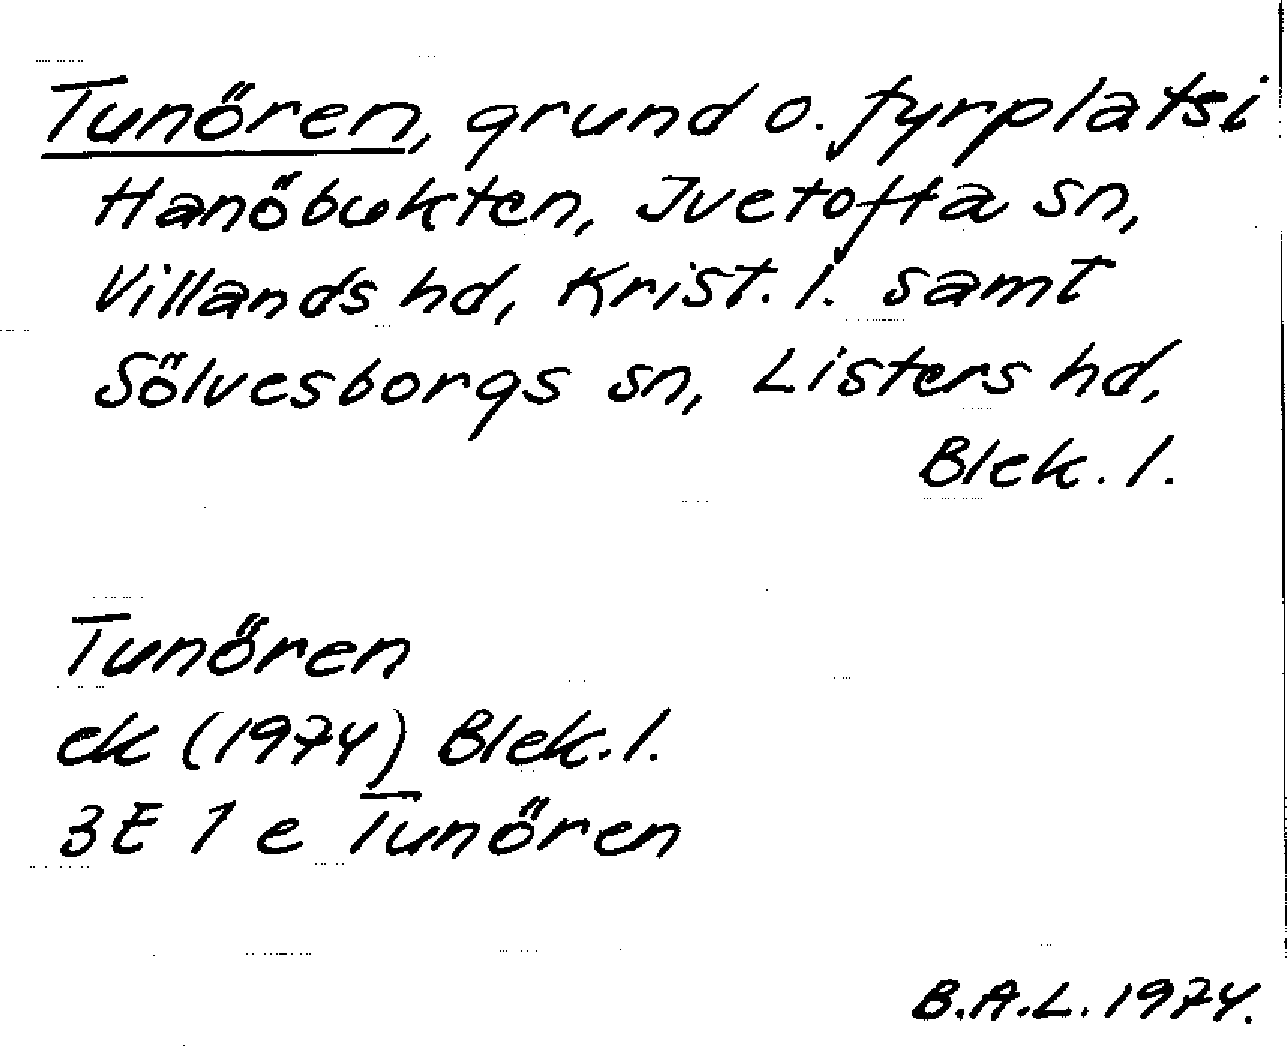 Tunören, grund o. fyrplats i
Hanöbukten, Ivetofta sn,
Villands hd, Krist. l. samt
Sölvesborgs sn, Listers hd,
Blek. l.
Tunören
ek (1974) Blek. l.
3E 1 e Tunören
B.A.L. 1974.